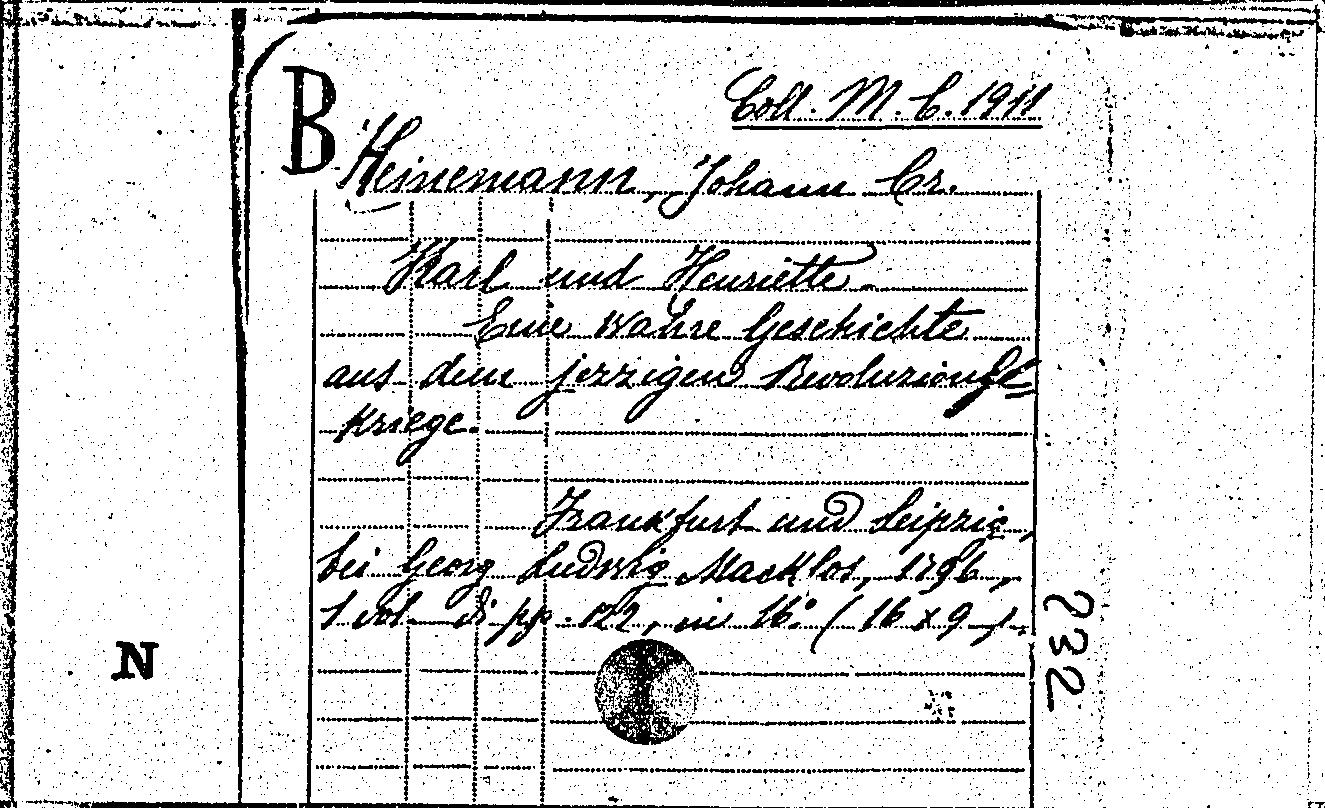 B
Coll. M. C. 1911
Heinemann, Johann Cr.
Karl und Henriette.
Eine wahre Geschichte
aus dem jezzigen Revoluzions=
kriege.
Frankfurt und Leipzig,
bei Georg Ludwig Macklos, 1796,
1 vol. di pp. 122, in 16.° (16 x 9).
232
N